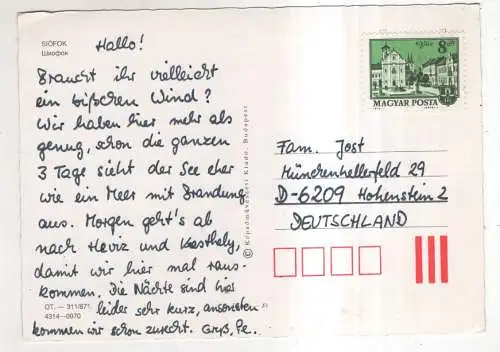 SIÓFOK
Шиофок
Hallo!
Braucht ihr vielleicht
ein bißchen Wind?
Wir haben hier mehr als
genug, schon die ganzen
3 Tage sieht der See eher
wie ein Meer mit Brandung
aus. Morgen geht's ab
nach Heviz und Kesthely,
damit wir hier mal raus-
kommen. Die Nächte sind hier
leider sehr kurz, ansonsten
kommen wir schon zurecht. Gruß, Pe.
OT. — 311/871
4314-0970
© Képzőművészeti Kiadó, Budapest
8 Ft
MAGYAR POSTA
Fam. Jost
Münchenhellerfeld 29
D-6209 Hohenstein 2
DEUTSCHLAND